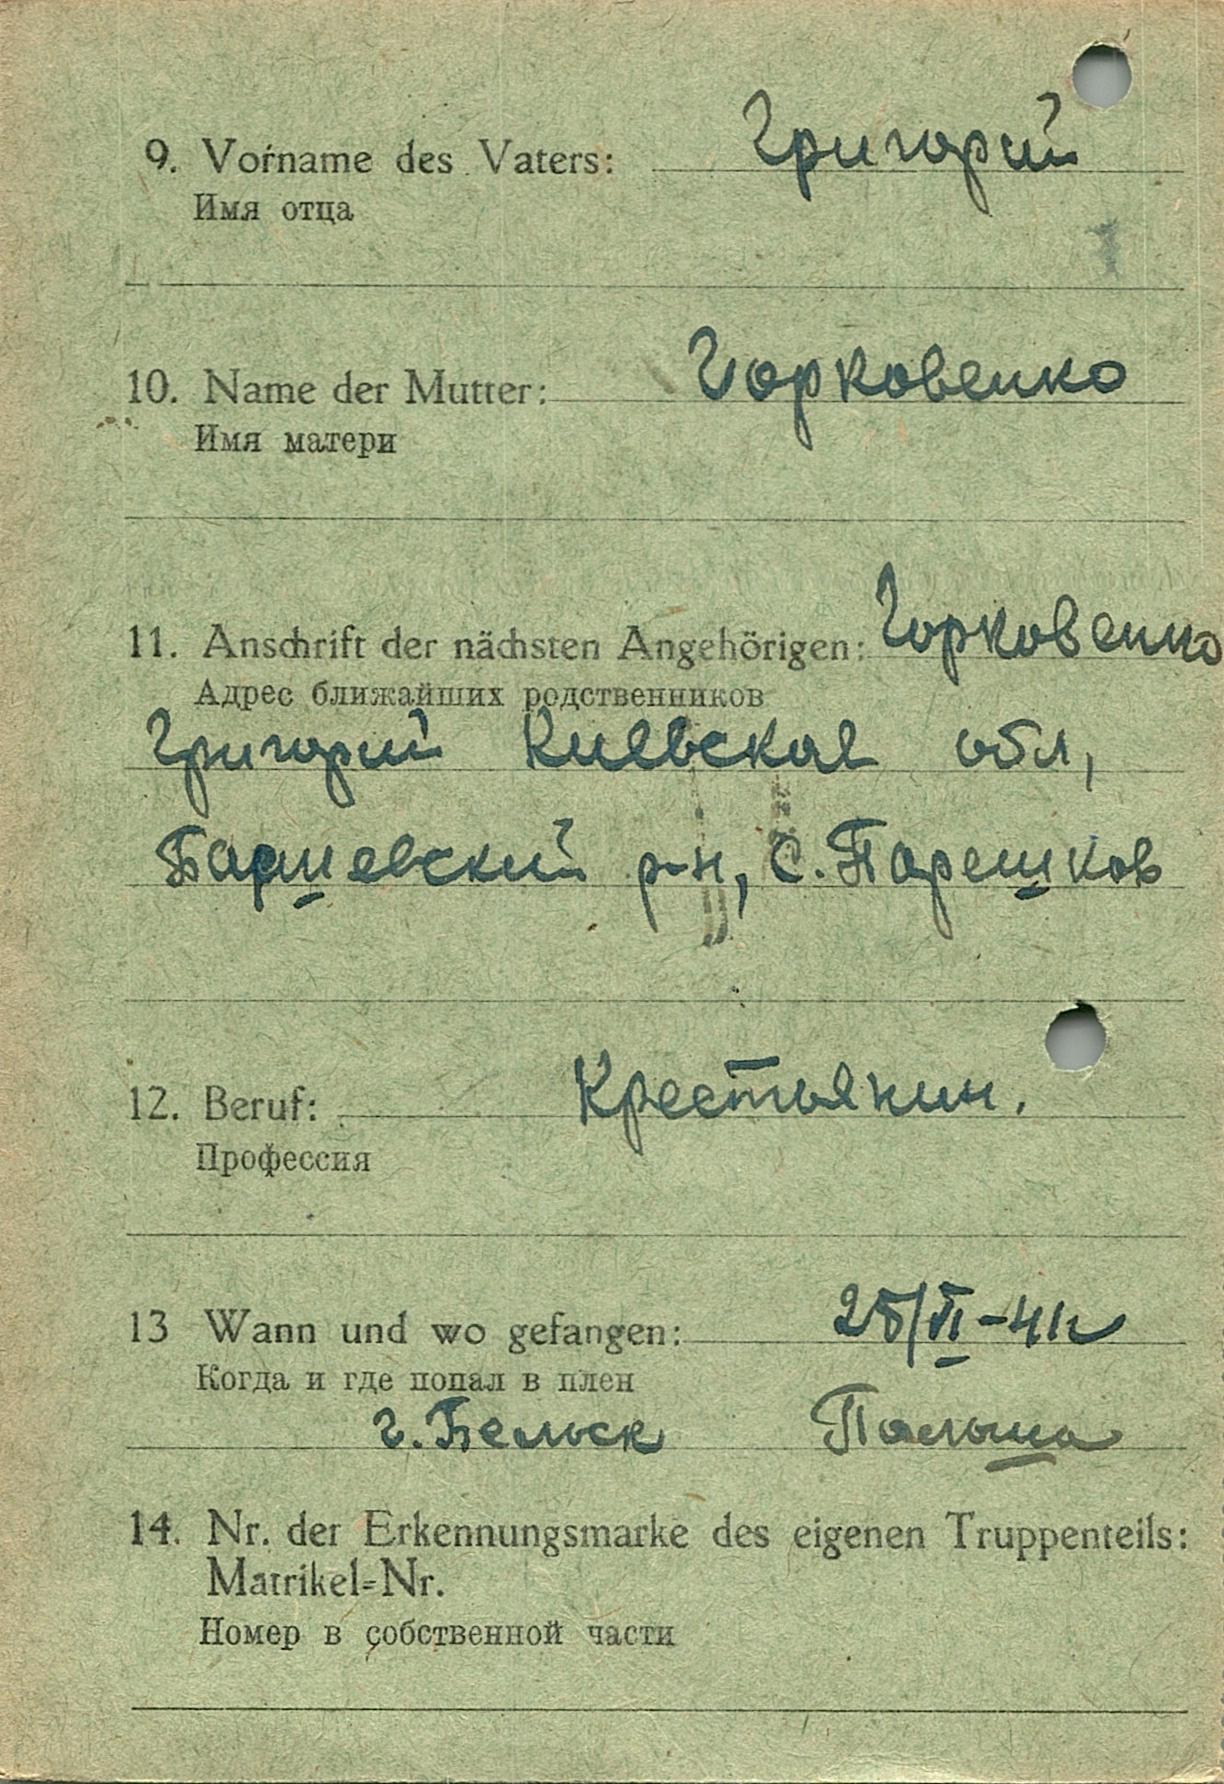 9. Vorname des Vaters: Григорий
Имя отца
10. Name der Mutter: Горковенко
Имя матери
11. Anschrift der nächsten Angehörigen: Горковенко
Адрес ближайших родственников
Григорий Киевская обл,
Баршевский р-н, С. Парешков
12. Beruf: Крестьянин.
Профессия
13 Wann und wo gefangen: 25/VI-41г
Когда и где попал в плен
г. Бельск Польша
14. Nr. der Erkennungsmarke des eigenen Truppenteils:
Matrikel-Nr.
Номер в собственной части